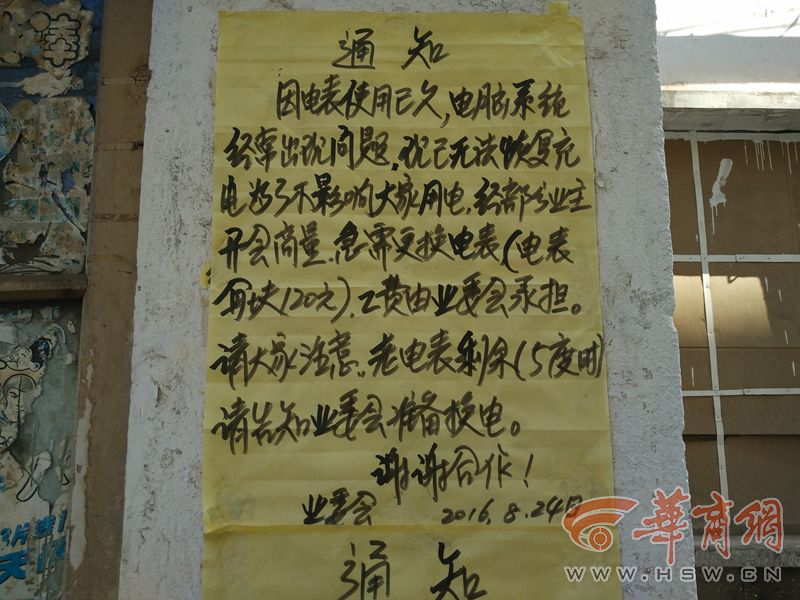 通知
因电表使用已久,电脑系统
经常出现问题,现已无法恢复充
电为了不影响大家用电,经部分业主
开会商量.急需更换电表(电表
每块120元),工费由业委会承担。
请大家注意..老电表剩余(5度时)
请告知业委会准备换电。
谢谢合作!
业委会 2016.8.24日
通知
华商网
WWW.HSW.CN